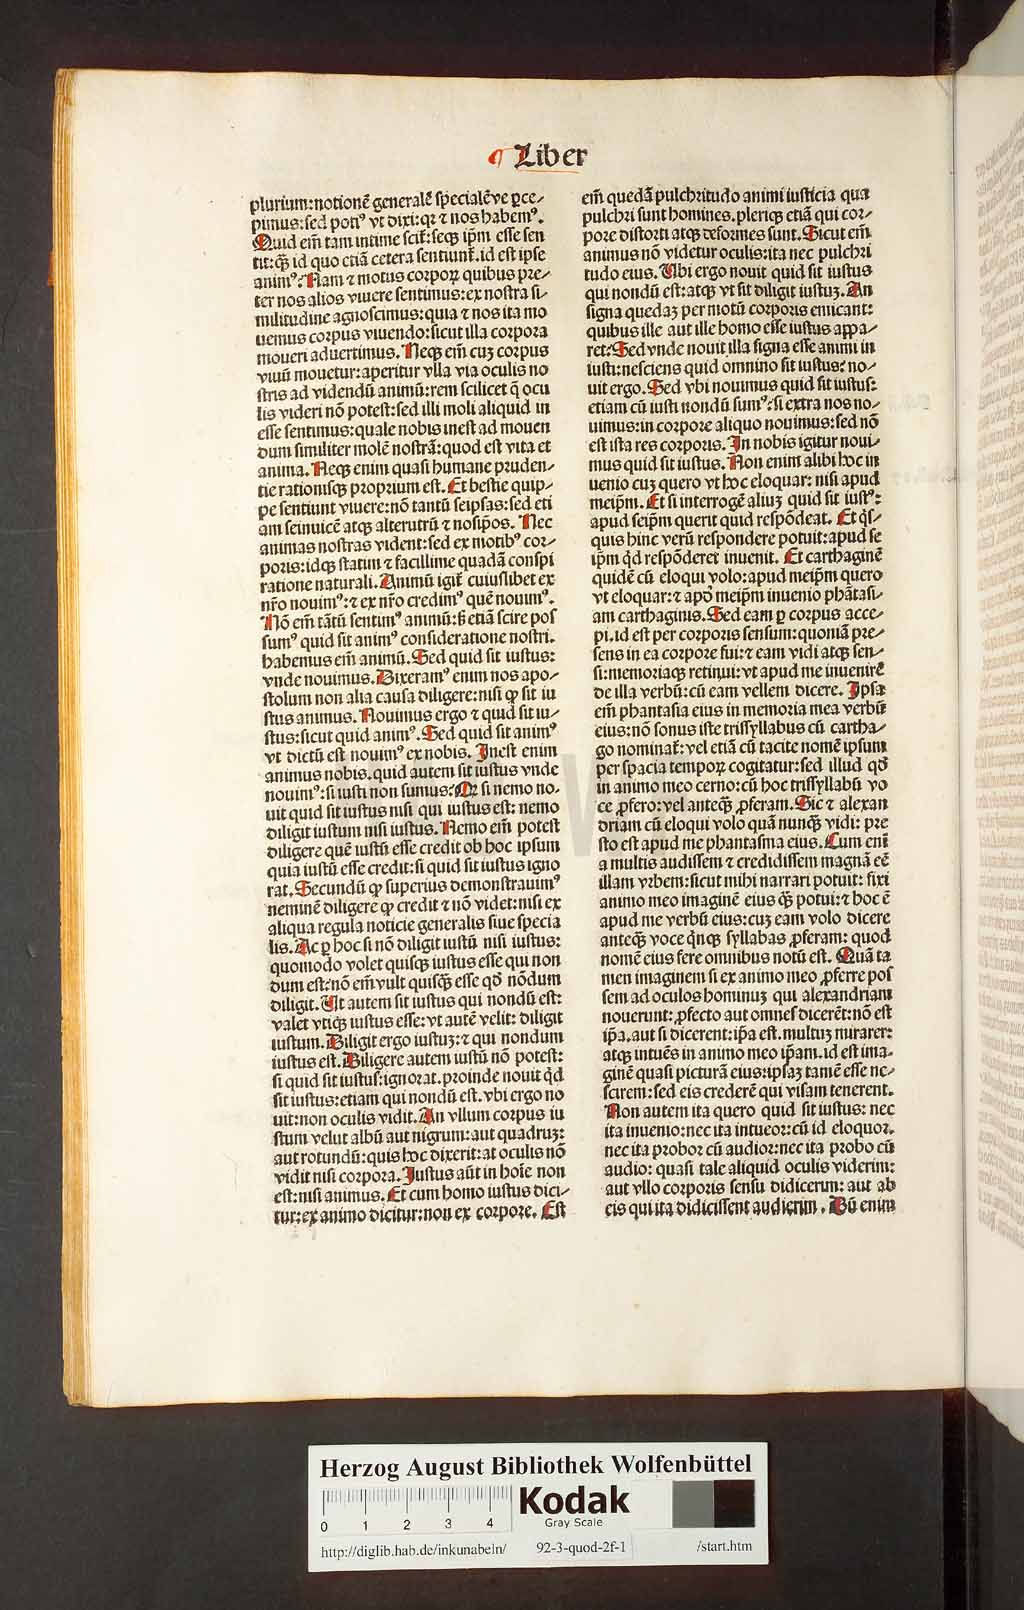 ¶ Liber
plurium:notionē generalē specialēve ꝑce⸗
pimus:sed potiꝰ vt dixi:qꝛ ⁊ nos habemꝰ.
Quid em̄ tam intime scit̄:seqꝫ ip̄m esse sen
tit:q̄ꝫ id quo etiā cetera sentiunt̄.id est ipse
animꝰ:Nam ⁊ motus corpoꝝ quibus pre⸗
ter nos alios viuere sentimus:ex nostra si⸗
militudine agnoscimus:quia ⁊ nos ita mo
uemus corpus viuendo:sicut illa corpora
moueri aduertimus. Neqꝫ em̄ cuꝫ corpus
viuū mouetur:aperitur vlla via oculis no
stris ad videndū animū:rem scilicet q̄ ocu
lis videri nō potest:sed illi moli aliquid in
esse sentimus:quale nobis inest ad mouen
dum similiter molē nostrā:quod est vita et
anima. Neqꝫ enim quasi humane pruden⸗
tie rationisqꝫ proprium est. Et bestie quip⸗
pe sentiunt viuere:nō tantū seipsas:sed eti
am seinuicē atqꝫ alterutrū ⁊ nosip̄os. Nec
animas nostras vident:sed ex motibꝰ cor⸗
poris:idqꝫ statim ⁊ facillime quadā conspi
ratione naturali. Animū igit̄ cuiuslibet ex
nr̄o nouimꝰ:⁊ ex nr̄o credimꝰ quē nouimꝰ.
Nō em̄ tātū sentimꝰ animū:s̄ etiā scire pos
sumꝰ quid sit animꝰ consideratione nostri.
habemus em̄ animū. Sed quid sit iustus:
vnde nouimus. Dixeramꝰ enim nos apo⸗
stolum non alia causa diligere:nisi ꝙ sit iu
stus animus. Nouimus ergo ⁊ quid sit iu⸗
stus:sicut quid animꝰ. Sed quid sit animꝰ
vt dictū est nouimꝰ ex nobis. Inest enim
animus nobis.quid autem sit iustus vnde
nouimꝰ:si iusti non sumus:Qꝛ si nemo no⸗
uit quid sit iustus nisi qui iustus est: nemo
diligit iustum nisi iustus. Nemo em̄ potest
diligere quē iustū esse credit ob hoc ipsum
quia iustū esse credit:si quid sit iustus igno
rat. Secundū ꝙ superius demonstrauimꝰ
neminē diligere ꝙ credit ⁊ nō videt:nisi ex
aliqua regula noticie generalis siue specia
lis. Ac ꝑ hoc si nō diligit iustū nisi iustus:
quomodo volet quisqꝫ iustus esse qui non
dum est:nō em̄ vult quisq̄ꝫ esse qd̄ nōdum
diligit. Ut autem sit iustus qui nondū est:
valet vtiqꝫ iustus esse:vt autē velit: diligit
iustum. Diligit ergo iustuꝫ:⁊ qui nondum
iustus est. Diligere autem iustū nō potest:
si quid sit iustus:ignorat.proinde nouit qd̄
sit iustus:etiam qui nondū est.vbi ergo no
uit:non oculis vidit. An vllum corpus iu
stum velut albū aut nigrum:aut quadruꝫ:
aut rotundū:quis hoc dixerit:at oculis nō
vidit nisi corpora. Justus aūt in hoīe non
est:nisi animus. Et cum homo iustus dici⸗
tur:ex animo dicitur:non ex corpore. Est
em̄ quedā pulchritudo animi iusticia qua
pulchri sunt homines.pleriqꝫ etiā qui cor⸗
pore distorti atqꝫ deformes sunt. Sicut em̄
animus nō videtur oculis:ita nec pulchri
tudo eius. Ubi ergo nouit quid sit iustus
qui nondū est:atqꝫ vt sit diligit iustuꝫ. An
signa quedaꝫ per motū corporis emicant:
quibus ille aut ille homo esse iustus appa⸗
ret:Sed vnde nouit illa signa esse animi in
iusti:nesciens quid omnino sit iustus: no⸗
uit ergo. Sed vbi nouimus quid sit iustus:
etiam cū iusti nondū sumꝰ:si extra nos no⸗
uimus:in corpore aliquo nouimus:sed nō
est ista res corporis. In nobis igitur noui⸗
mus quid sit iustus. Non enim alibi hoc in
uenio cuꝫ quero vt hoc eloquar: nisi apud
meip̄m. Et si interrogē aliuꝫ quid sit iustꝰ:
apud seip̄m querit quid respōdeat. Et q̇s⸗
quis hinc verū respondere potuit:apud se
ip̄m qd̄ respōderet inuenit. Et carthaginē
quidē cū eloqui volo:apud meip̄m quero
vt eloquar:⁊ apd̄ meip̄m inuenio phātasi⸗
am carthaginis. Sed eam ꝑ corpus acce⸗
pi.id est per corporis sensum:quoniā pre⸗
sens in ea corpore fui:⁊ eam vidi atqꝫ sen⸗
si:memoriaqꝫ retinui:vt apud me inuenirē
de illa verbū:cū eam vellem dicere. Ipsa
em̄ phantasia eius in memoria mea verbū
eius:nō sonus iste trissyllabus cū cartha⸗
go nominat̄:vel etiā cū tacite nomē ipsum
per spacia tempoꝝ cogitatur:sed illud qd̄
in animo meo cerno:cū hoc trissyllabū vo
ce ꝓfero:vel anteqꝫ ꝓferam. Sic ⁊ alexan
driam cū eloqui volo quā nunqꝫ vidi: pre
sto est apud me phantasma eius. Cum enī
a multis audissem ⁊ credidissem magnā eē
illam vrbem:sicut mihi narrari potuit: fixi
animo meo imaginē eius q̄ꝫ potui:⁊ hoc ē
apud me verbū eius:cuꝫ eam volo dicere
anteq̄ꝫ voce q̇nqꝫ syllabas ꝓferam: quod
nomē eius fere omnibus notū est. Quā ta
men imaginem si ex animo meo ꝓferre pos
sem ad oculos hominuꝫ qui alexandriam
nouerunt:ꝓfecto aut omnes dicerēt:nō est
ip̄a.aut si dicerent:ip̄a est.multuꝫ mirarer:
atqꝫ intuēs in animo meo ip̄am.id est ima⸗
ginē quasi picturā eius:ipsaꝫ tamē esse ne⸗
scirem:sed eis crederē qui visam tenerent.
Non autem ita quero quid sit iustus: nec
ita inuenio:nec ita intueor:cū id eloquor.
nec ita probor cū audior:nec ita probo cū
audio: quasi tale aliquid oculis viderim:
aut vllo corporis sensu didicerim: aut ab
eis qui ita didicissent audierim. Dū enim
Herzog August Bibliothek Wolfenbüttel
Kodak
Gray Scale
0 1 2 3 4
http://diglib.hab.de/inkunabeln/ 92-3-quod-2f-1 /start.htm